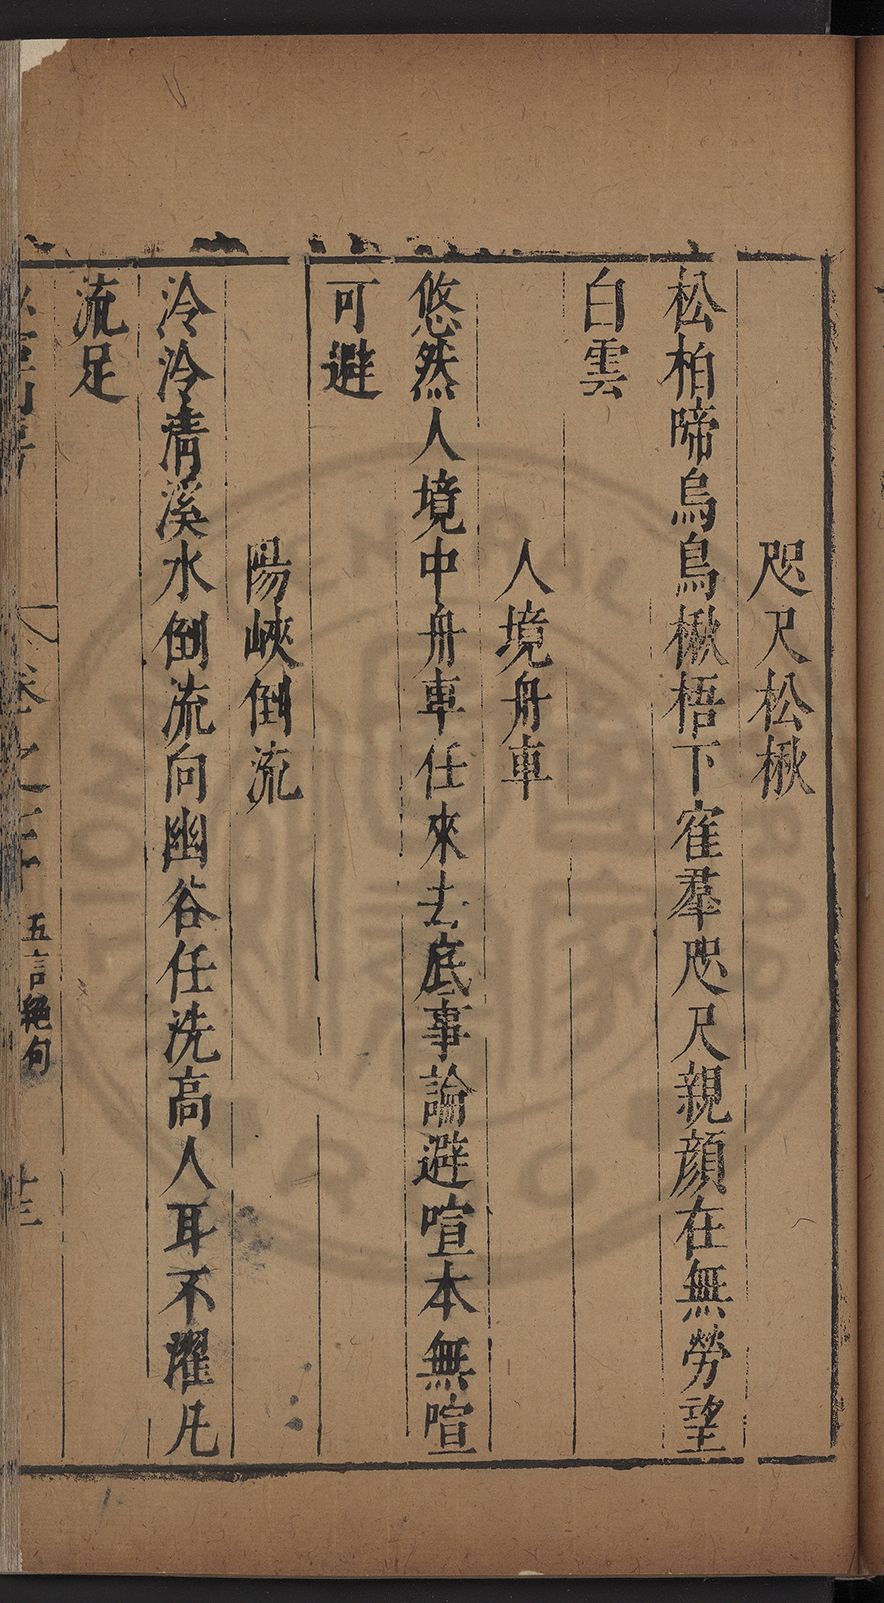 咫尺松楸
松柏啼烏鳥楸梧下寉羣咫尺親顔在無勞望
白雲
人境舟車
悠然人境中舟車任來去底事論避喧本無喧
可避
陽峽倒流
泠泠淸溪水倒流向幽谷任洗高人耳不濯凡
流足
卷之三 五言絶句